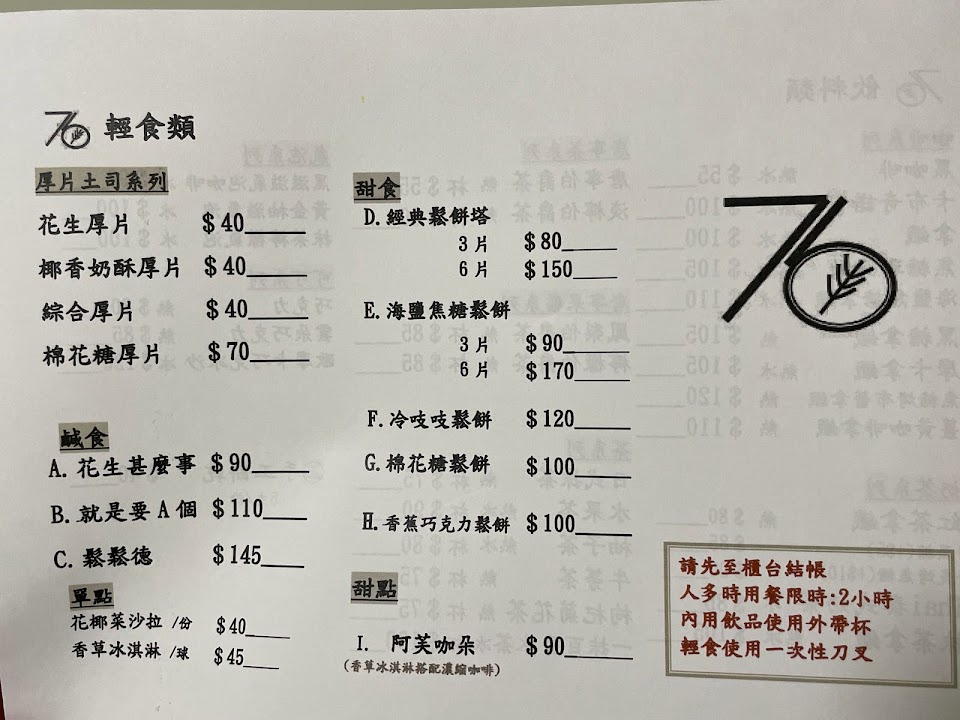 70 輕食類
厚片土司系列
花生厚片 $40____
椰香奶酥厚片 $40____
綜合厚片 $40____
棉花糖厚片 $70____
鹹食
A. 花生甚麼事 $90____
B. 就是要A個 $110____
C. 鬆鬆德 $145____
單點
花椰菜沙拉 /份 $40____
香草冰淇淋 /球 $45____
甜食
D. 經典鬆餅塔
3片 $80____
6片 $150____
E. 海鹽焦糖鬆餅
3片 $90____
6片 $170____
F. 冷吱吱鬆餅 $120____
G. 棉花糖鬆餅 $100____
H. 香蕉巧克力鬆餅 $100____
甜點
I. 阿芙咖朵 $90____
(香草冰淇淋搭配濃縮咖啡)
70
請先至櫃台結帳
人多時用餐限時:2小時
內用飲品使用外帶杯
輕食使用一次性刀叉